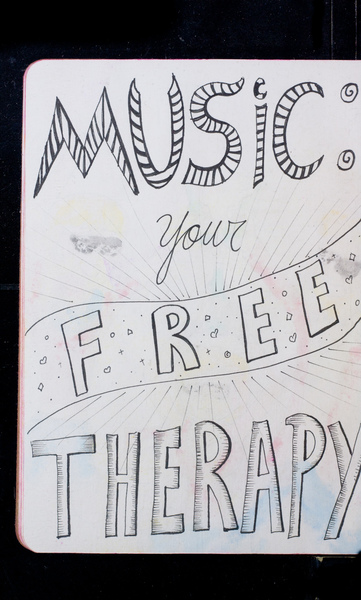 MUSiC:
your
FREE
THERAPY